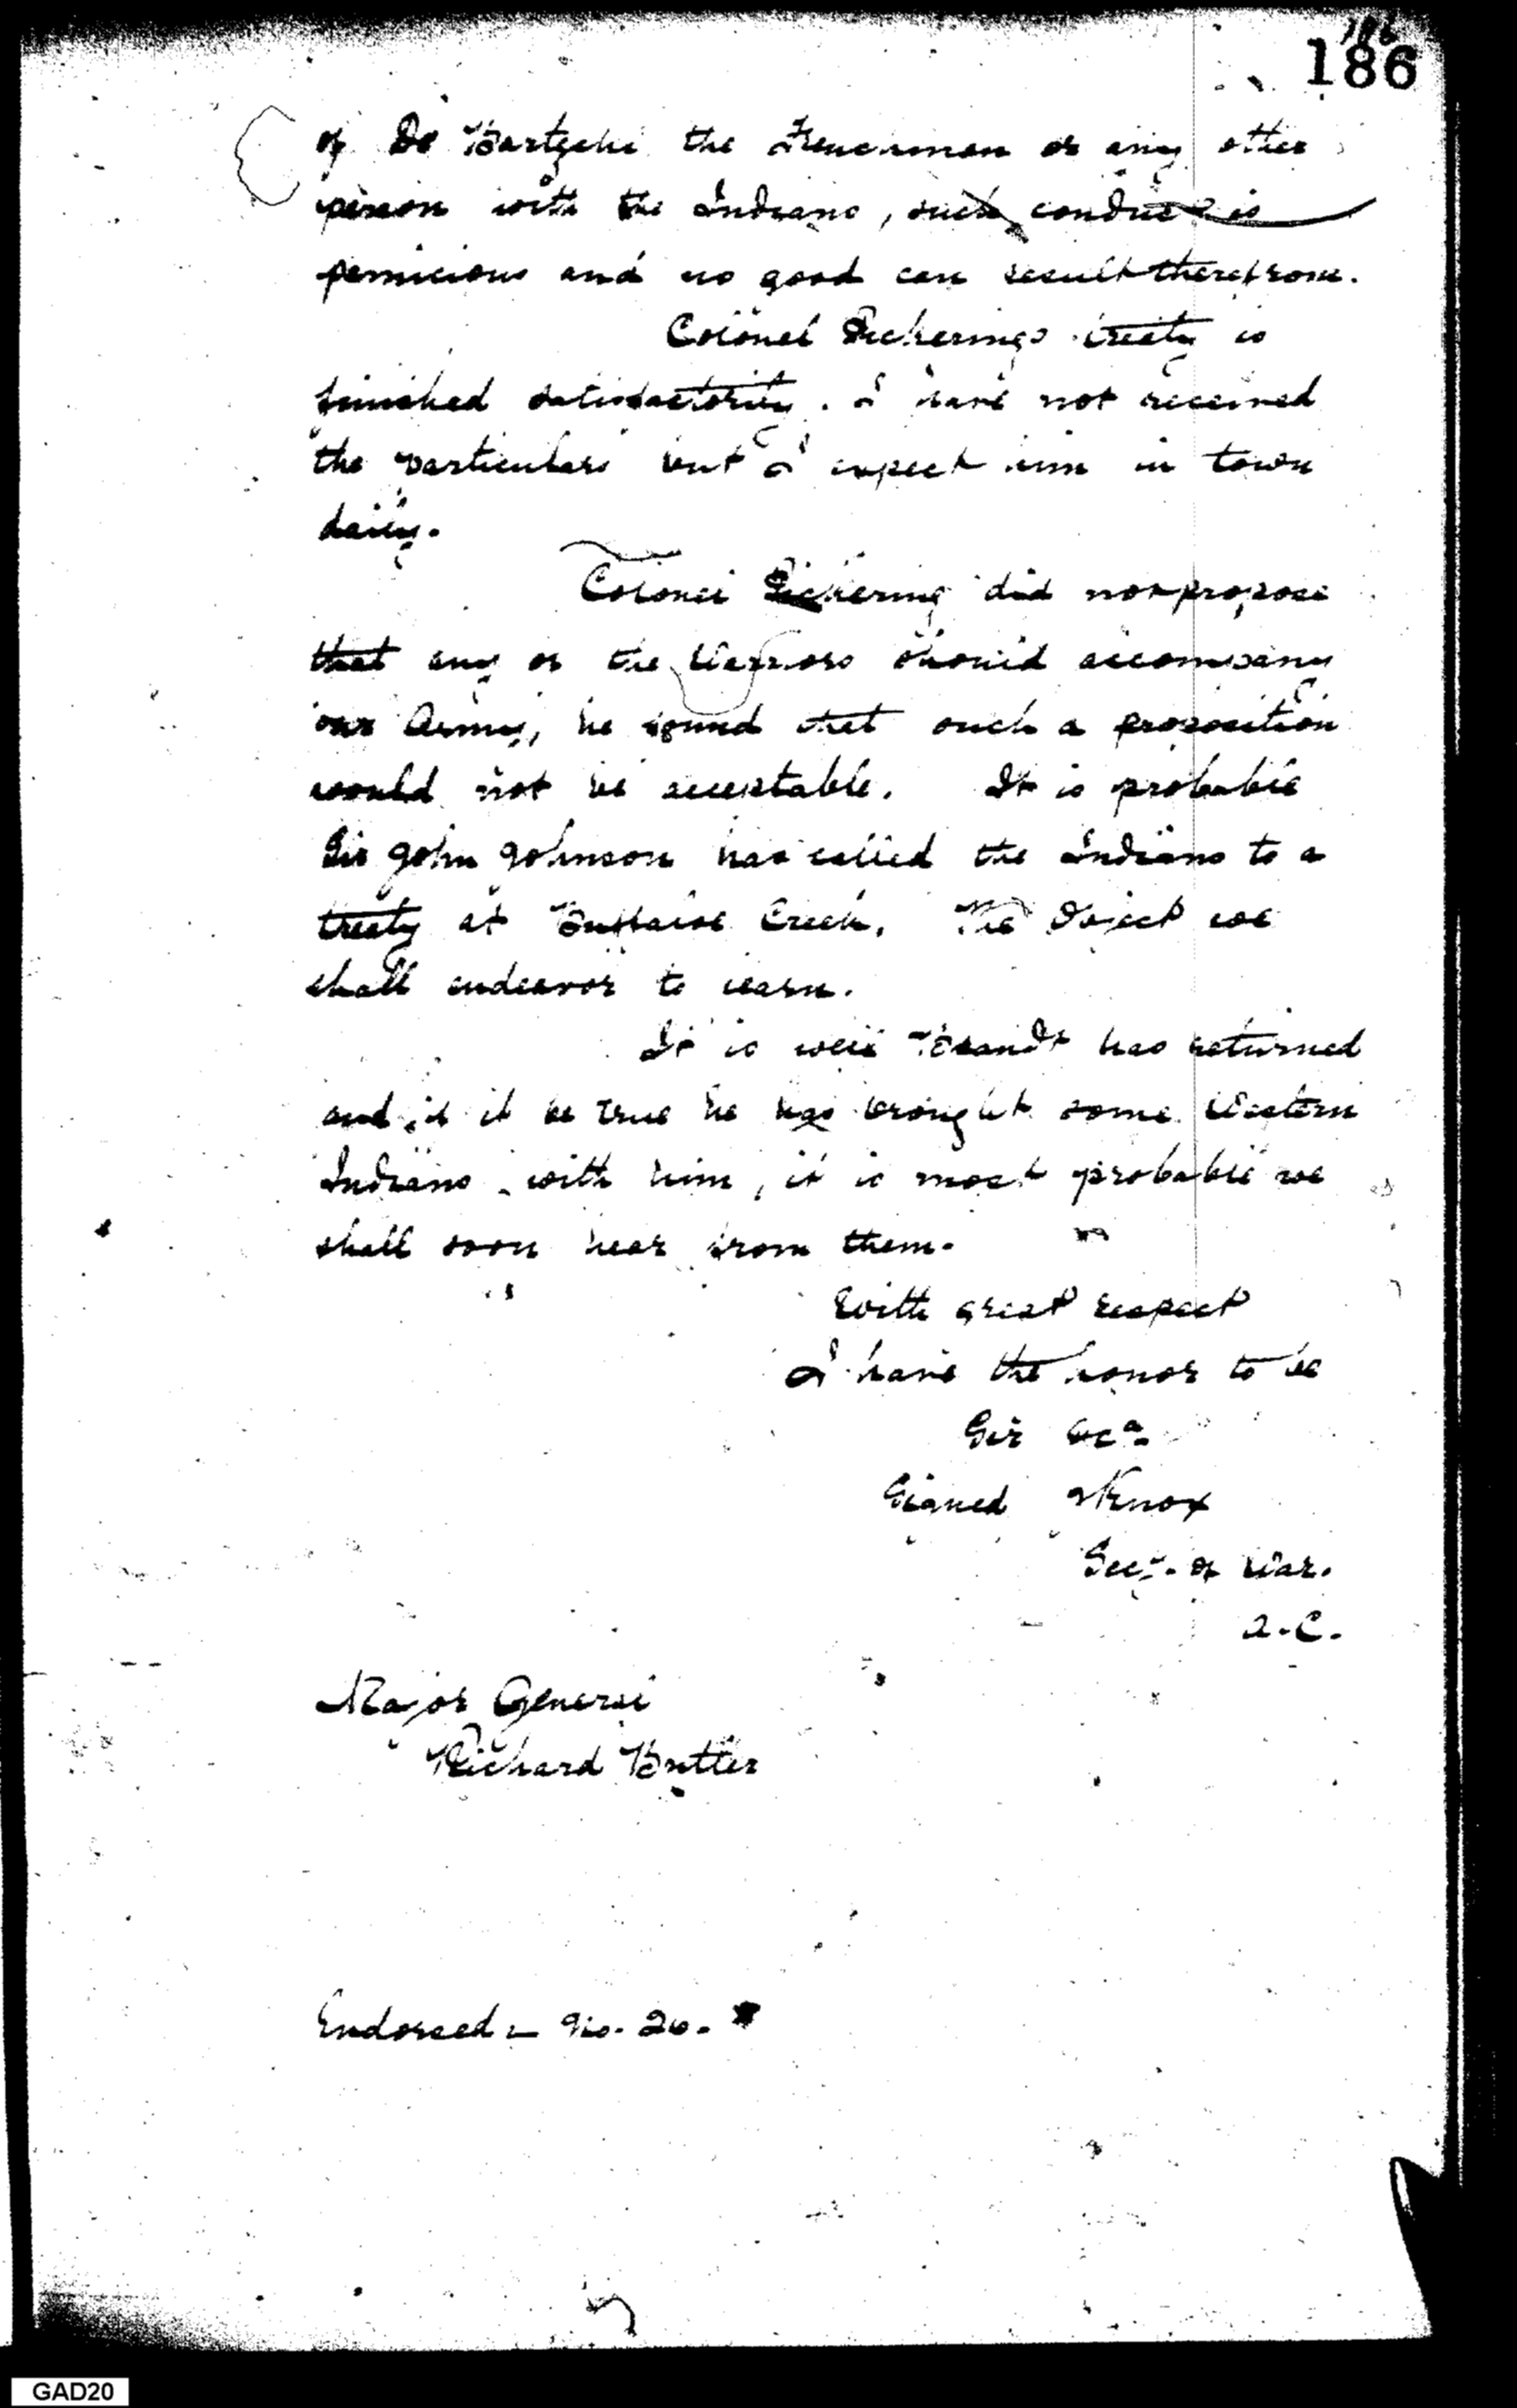 186
of De Bartzche the Frenchman or any other
person with the Indians, such conduct is
pernicious and no good can result therefrom.
Colonel Pickerings treaty is
finished satisfactorily. I have not received
the particulars but I expect him in town
daily.
Colonel Pickering did not propose
that any of the Warriors should accompany
our Army, he found that such a proposition
would not be acceptable. It is probable
Sir John Johnson has called the Indians to a
treaty at Buffaloe Creek. The Object we
shall endeavor to learn.
It is well Brandt has returned
and if it be true he has brought some Western
Indians with him, it is most probable we
shall soon hear from them.
With great respect
I have the honor to be
Sir &ca.
Signed HKnox
Secy. of War.
a.C.
Major General
Richard Butler
Endorsed - No. 20.
GAD20